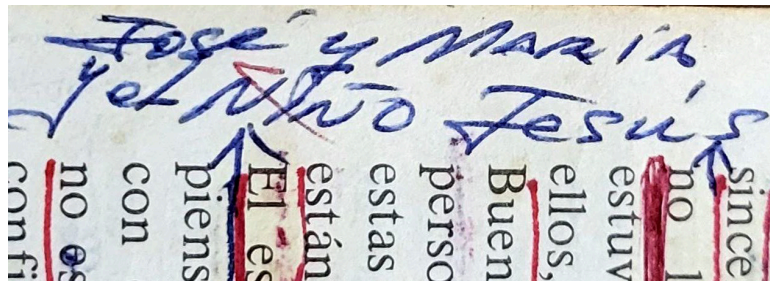 José y MARÍA
y el NIÑO Jesús
since
no l
estuv
ellos,
Buen
perso
estas
están
El es
piens
con
no es
confi